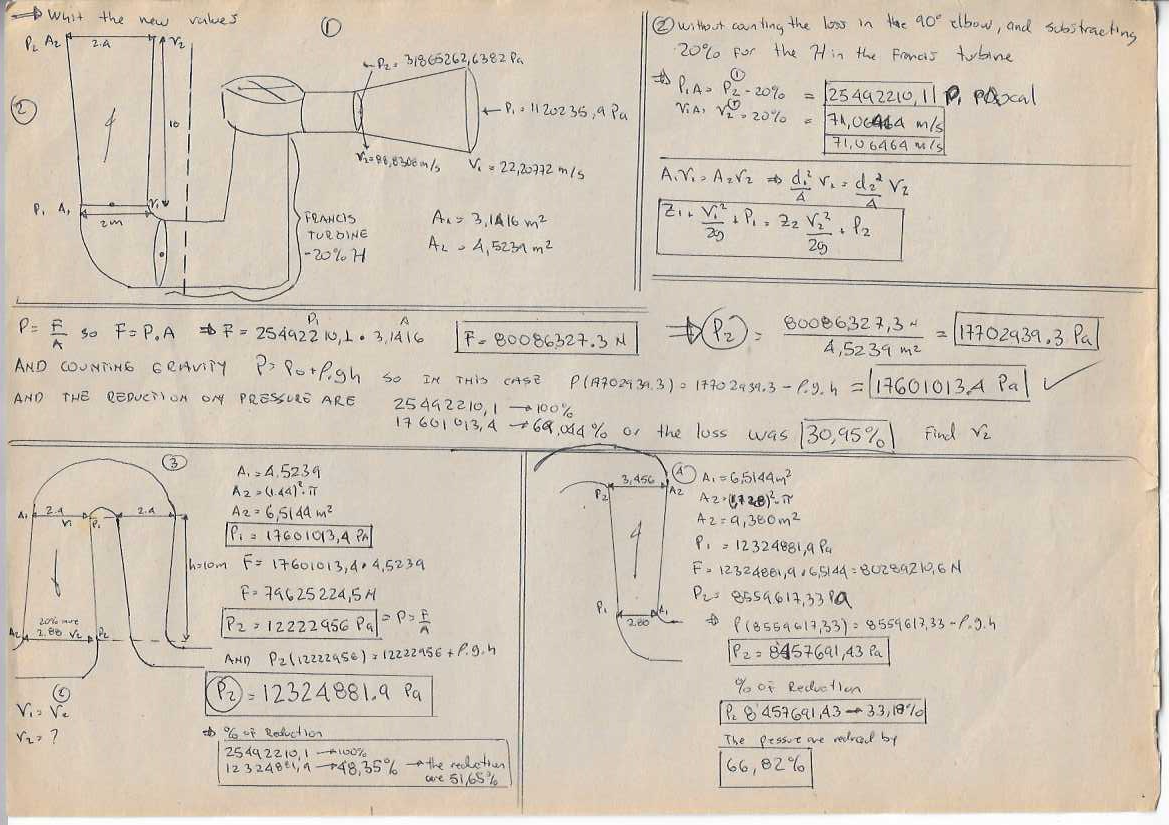 ⇒ Whit the new values
①
P₂ A₂ 2.4 V₂
②
10
P₁ A₁ V₁
2m
P₂ = 31865262,6382 Pa
P₁ = 1120235,9 Pa
V₂ = 88,8308 m/s
V₁ = 22,20772 m/s
FRANCIS
TURBINE
-20% H
A₁ = 3,1416 m²
A₂ = 4,5239 m²
② without counting the loss in the 90° elbow, and substracting
20% for the H in the Francis turbine
⇒ P₁A = P₂① - 20% = 25492210,11 P₁ Pascal
V₁A = V₂① - 20% = 71,06464 m/s
71,06464 m/s
A₁V₁ = A₂V₂ ⇒ d₁²/4 V₁ = d₂²/4 V₂
Z₁ + V₁²/2g + P₁ = Z₂ V₂²/2g + P₂
P = F/A so F = P.A ⇒ F = 25492210,1 • 3,1416 F = 80086327.3 N
P₁ A
⇒ P₂ = 80086327,3 N / 4,5239 m² = 17702939.3 Pa
AND COUNTING GRAVITY P = P₀ + ρ.gh so IN THIS CASE P(17702939.3) = 17702939.3 - ρ.g.h = 17601013,4 Pa ✓
AND THE REDUCTION ON PRESSURE ARE 25492210,1 → 100%
17601013,4 → 69,044% or the loss was 30,95% Find V₂
③
A₁ 2.4 P₁ 2.4
V₁
h=10m
20% more
A₂ 2.88 V₂ P₂
②
V₁ = V₂
V₂ = ?
A₁ = 4.5239
A₂ = (1.44)².π
A₂ = 6,5144 m²
P₁ = 17601013,4 Pa
F = 17601013,4 • 4,5239
F = 79625224,5 N
P₂ = 12222956 Pa = P = F/A
AND P₂(12222956) = 12222956 + ρ.g.h
P₂ = 12324881.9 Pa
⇒ % of Reduction
25492210,1 → 100%
12324881,9 → 48,35% → the reduction
are 51,65%
④
3,456
P₂ A₂
P₁ A₁
2.88
A₁ = 6,5144 m²
A₂ = (1,728)².π
A₂ = 9,380 m²
P₁ = 12324881,9 Pa
F = 12324881,9 • 6,5144 = 80289210,6 N
P₂ = 8559617,33 Pa
⇒ P(8559617,33) = 8559617,33 - ρ.g.h
P₂ = 8457691,43 Pa
% of Reduction
P₂ 8457691,43 → 33,18%
The pessure are redced by
66,82%